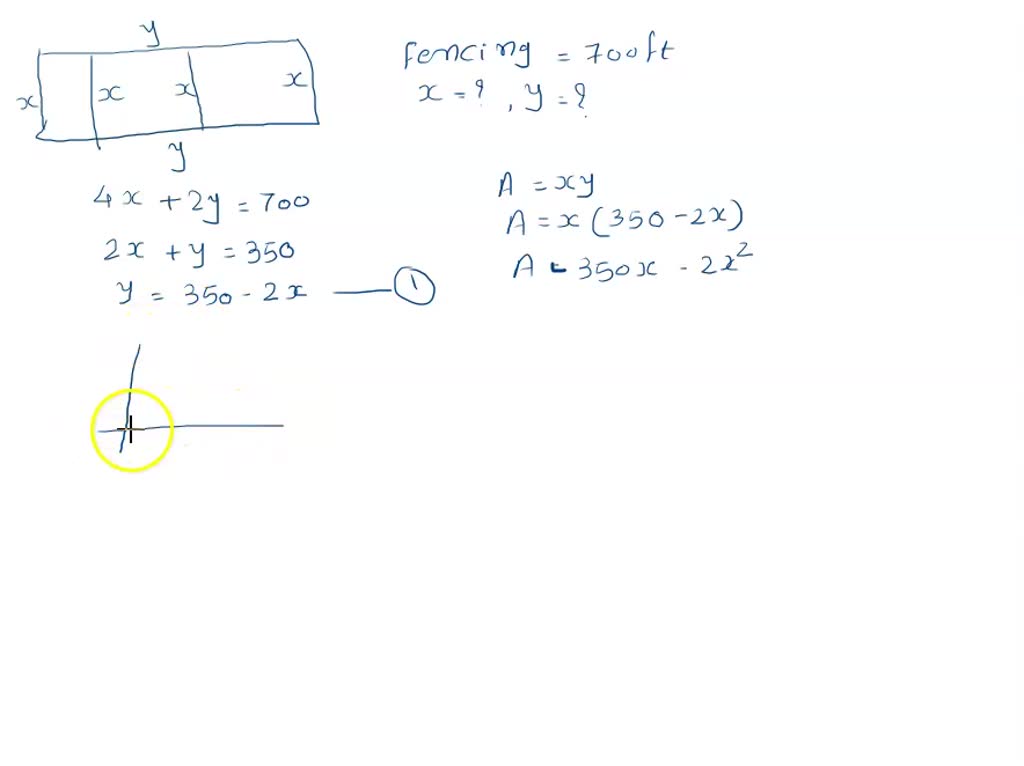 y
x x x x
y
Fencing = 700ft
x = ? , y = ?
4x + 2y = 700
2x + y = 350
y = 350 - 2x —— ①
A = xy
A = x (350 - 2x)
A = 350x - 2x²